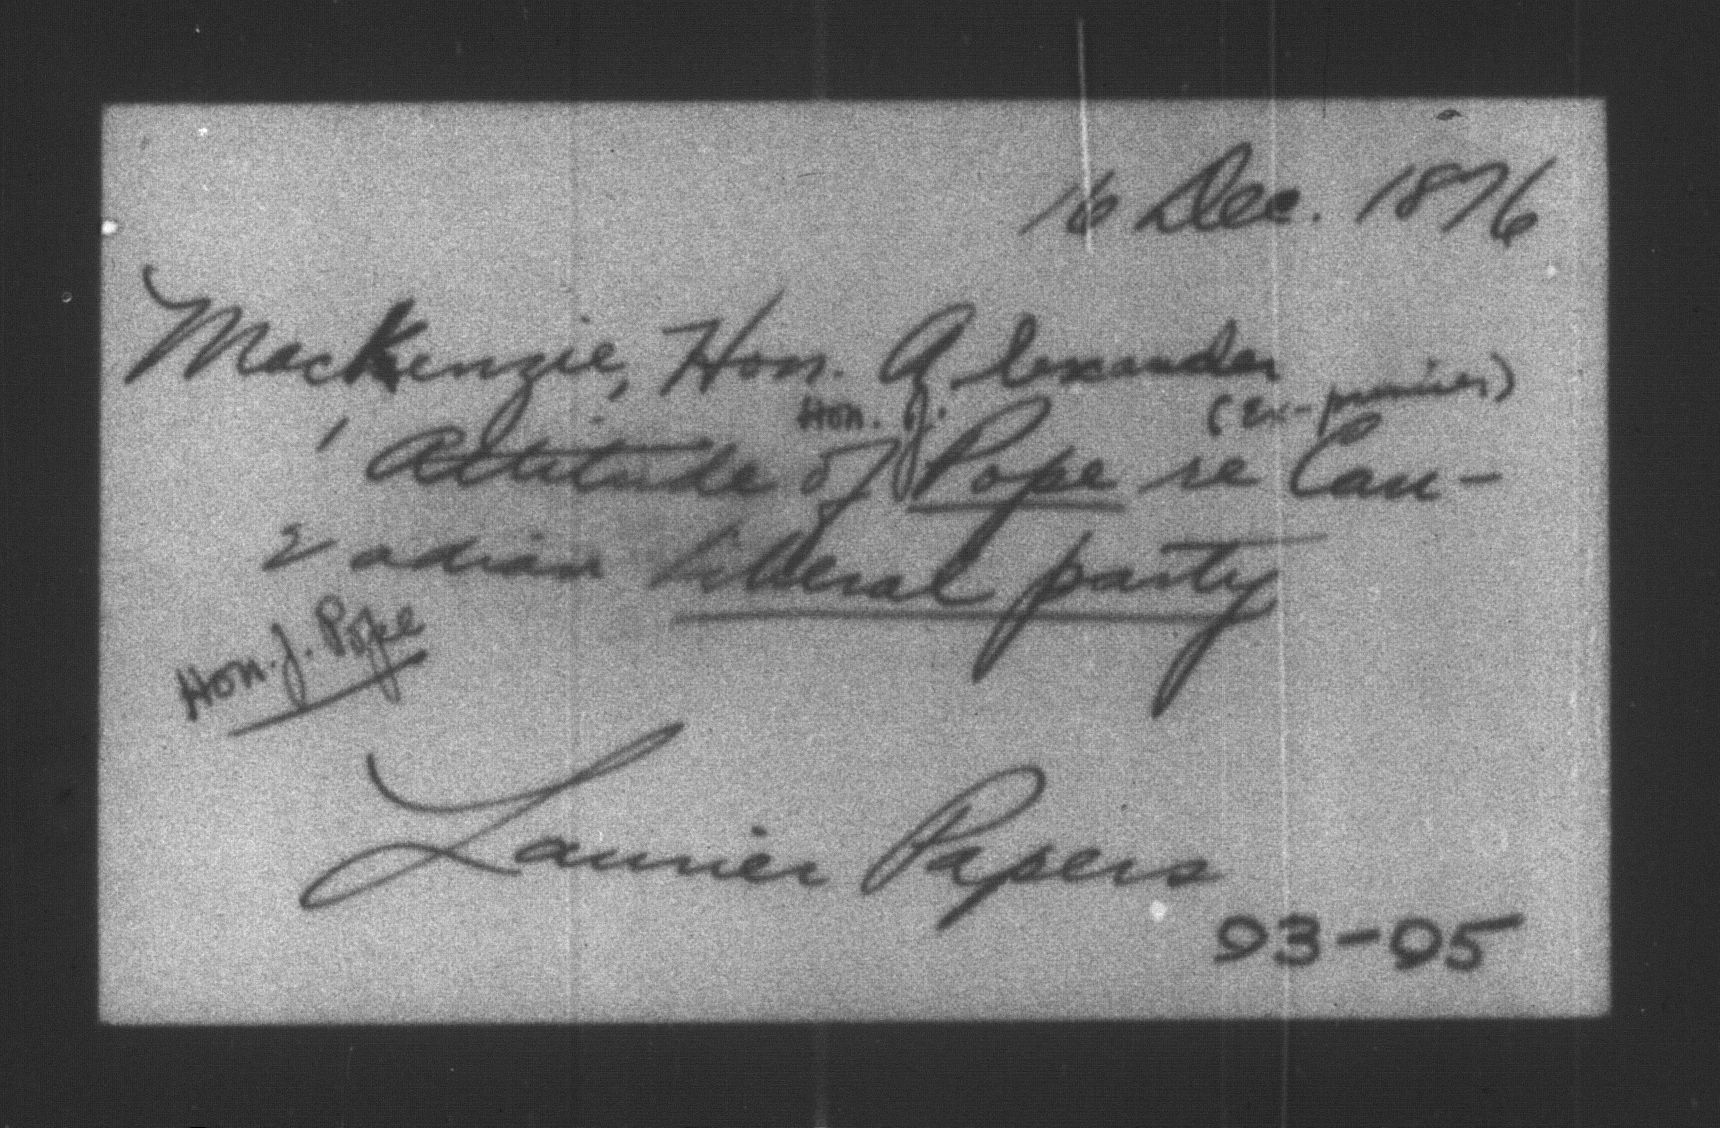 16 Dec. 1876
MacKenzie, Hon. Alexander
(Ex-premier)
Hon. J.
1 Attitude of Pope re Can-
2 adian liberal party
Hon. J. Pope
Laurier Papers
93-95